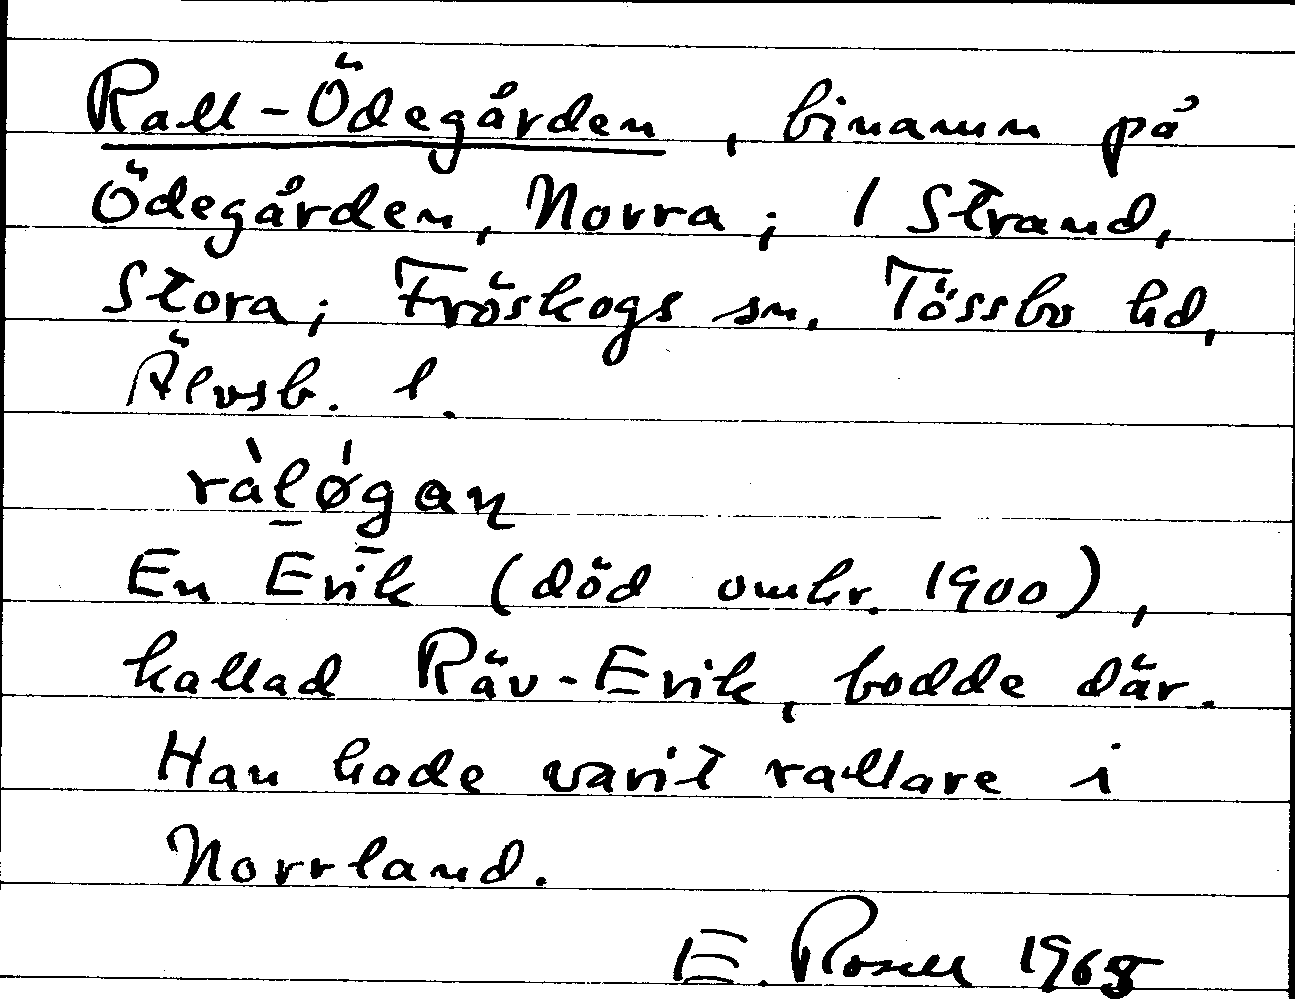 Rall-Ödegården, binamn på
Ödegården, Norra; 1 Strand,
Stora; Fröskogs sn. Tössbo hd,
Älvsb. l.
ràḻǿg̱aɳ
En Erik (död omkr. 1900),
kallad Räv-Erik, bodde där.
Han hade varit rallare i
Norrland.
E. Rosell 1965